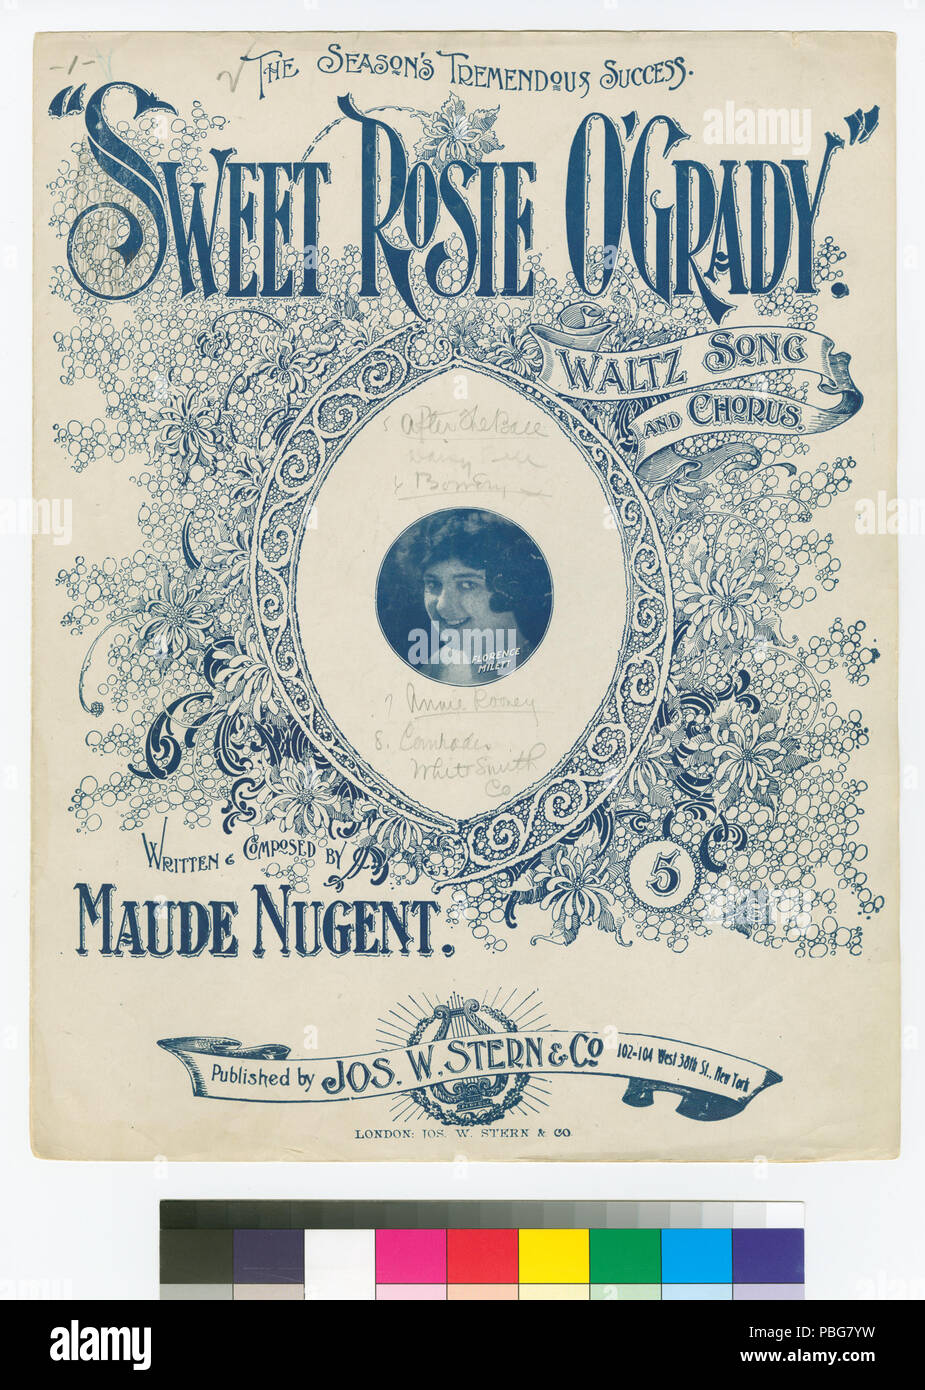 -1-
THE SEASON'S TREMENDOUS SUCCESS.
"SWEET ROSIE O'GRADY."
WALTZ SONG
AND CHORUS.
5 After the Ball
Daisy Bell
6 Bowery
FLORENCE
MILLETT
7 Annie Rooney
8. Comrades
White Smith
Co
WRITTEN & COMPOSED BY
5
MAUDE NUGENT.
Published by JOS. W. STERN & CO 102-104 West 38th St., New York
LONDON: JOS. W. STERN & CO.
alamy
alamy
Image ID: PBG7YW
www.alamy.com